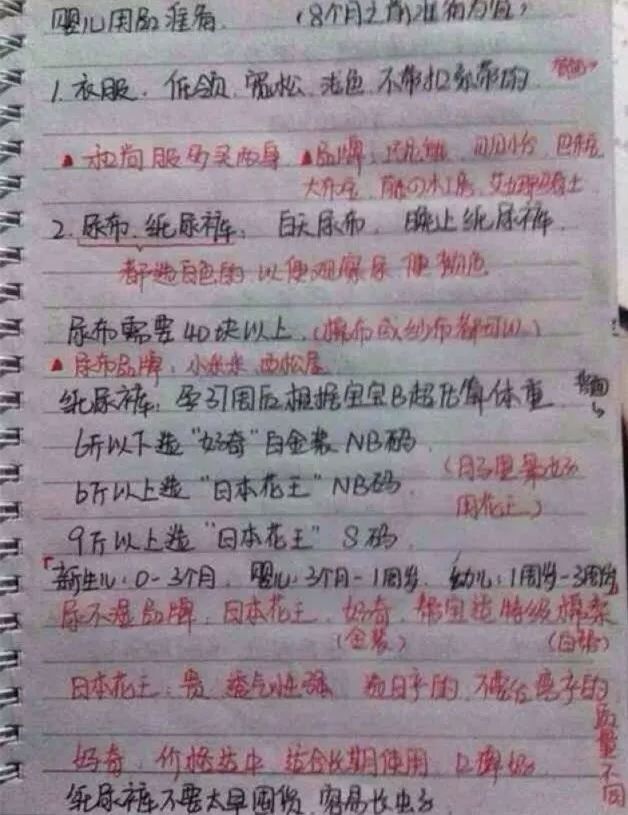 婴儿用品准备 (8个月之前准备为宜)
1. 衣服、低领、宽松、浅色、不带扣系带的 背面→
▲ 和尚服多买两身 ▲品牌:
大、艾
2. 尿布、纸尿裤: 白天尿布, 晚上纸尿裤.
都选白色的以便观察尿便颜色
尿布需要40块以上. (棉布或纱布都可以)
▲ 尿布品牌: 小米米 西松屋
纸尿裤: 孕37周后根据宝宝B超估算体重 背面
6斤以下选“好奇”白金装 NB码.
6斤以上选“日本花王” NB码. (月子里最好
用花王)
9斤以上选“日本花王” S码.
新生儿: 0-3个月. 婴儿: 3个月-1周岁. 幼儿: 1周岁-3周岁
尿不湿品牌: 日本花王、好奇、帮宝适特级棉柔
(金装) (白帮)
日本花王: 贵 透气性强 选日产的, 不要台湾产的
质量不同
好奇: 价格适中 适合长期使用 口碑好
纸尿裤不要太早囤货, 容易长虫子